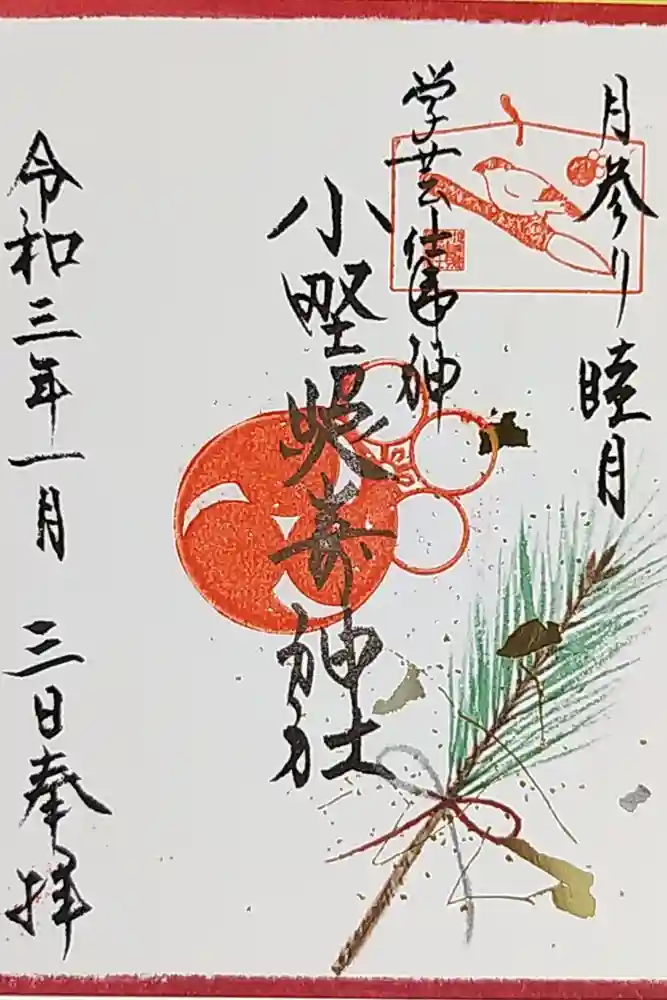 月参り 睦月
学芸仕事神
小野照崎神社
令和三年一月 三日奉拝